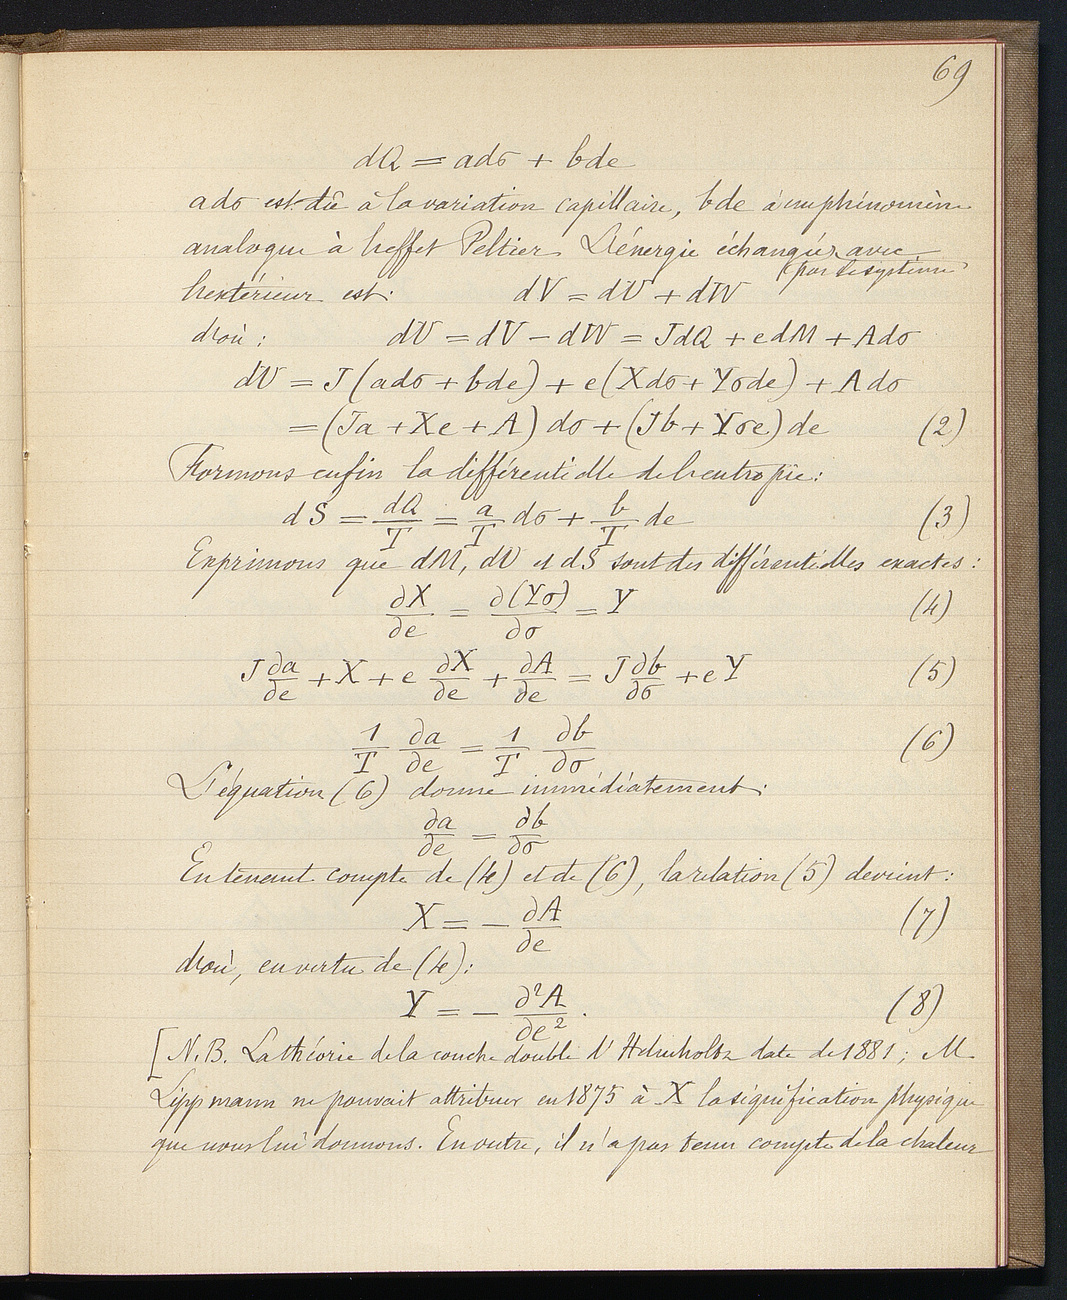 69
dQ = adσ + bde
adσ est dû à la variation capillaire, bde à un phénomène
analogue à l'effet Peltier. L'énergie échangée avec
(par le système
l'extérieur est: dV = dU + dW
d'où : dU = dV − dW = JdQ + edM + Adσ
dU = J(adσ + bde) + e(Xdσ + Yσde) + Adσ
= (Ja + Xe + A) dσ + (Jb + Yσe) de (2)
Formons enfin la différentielle de l'entropie:
dS = dQ/T = a/T dσ + b/T de (3)
Exprimons que dM, dU et dS sont des différentielles exactes :
∂X/∂e = ∂(Yσ)/∂σ = Y (4)
J ∂a/∂e + X + e ∂X/∂e + ∂A/∂e = J ∂b/∂σ + eY (5)
1/T ∂a/∂e = 1/T ∂b/∂σ (6)
L'équation (6) donne immédiatement :
∂a/∂e = ∂b/∂σ
En tenant compte de (4) et de (6), la relation (5) devient :
X = − ∂A/∂e (7)
d'où, en vertu de (4) :
Y = − ∂²A/∂e² . (8)
[N.B. La théorie de la couche double d'Helmholtz date de 1881 ; M.
Lippmann ne pouvait attribuer en 1875 à X la signification physique
que nous lui donnons. En outre, il n'a pas tenu compte de la chaleur